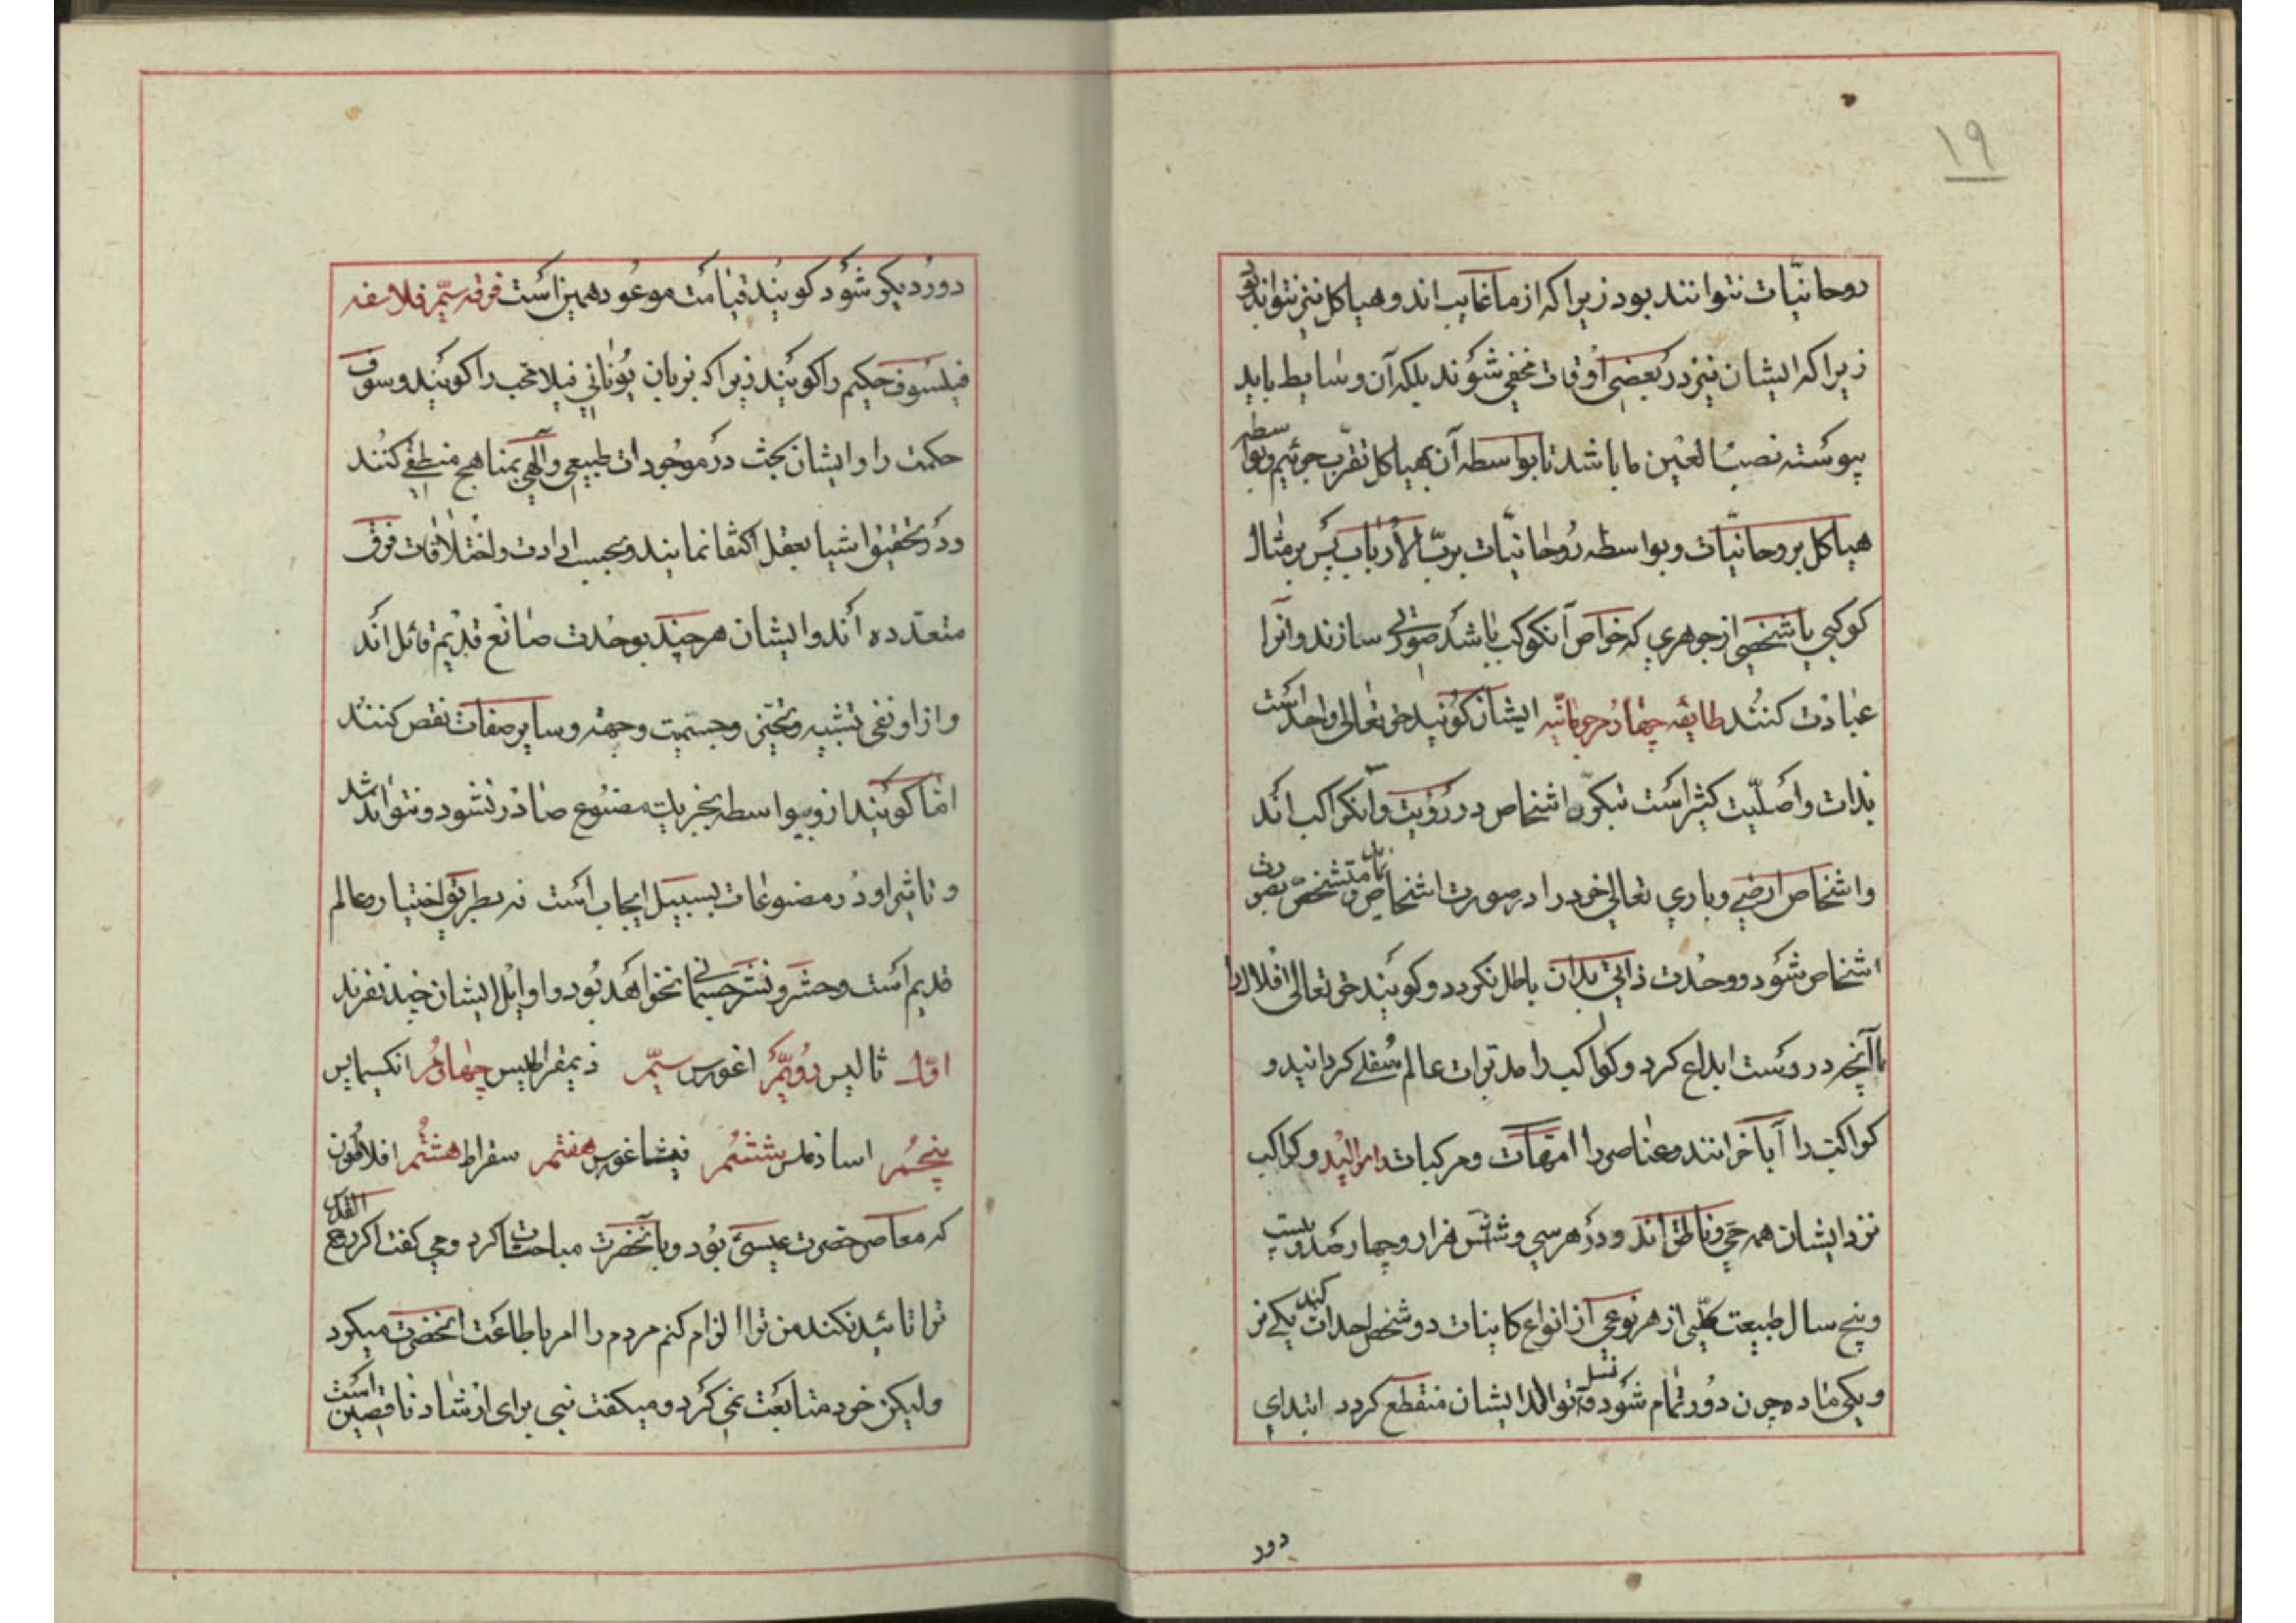 ۱۹
روحانیّات نتوانند بود زیرا که از ما غایب‌اند و هیاکل نیز نتوانند بود
زیرا که ایشان نیز در بعضی اوقات مخفی شوند بلکه آن وسایط باید
پیوسته نصب العین ما باشد تا بواسطه آن بهیاکل تقرّب جوئیم و بواسطه
هیاکل بروحانیّات و بواسطه روحانیّات بربّ الارباب پس بر مثال
کوکبی یا شخصی از جوهری که خواص آنکوکب باشد صورتی سازند و آنرا
عبادت کنند طایفه چهارم حرنانیّه ایشان گویند حق تعالی واحد است
بذات و اصلیّت کثیر است بتکوّن اشخاص در رؤیت و آنکواکب اند
و اشخاص ارضی و باری تعالی خود را در صورت اشخاص نماید و متشخّص بصورت
اشخاص شود و وحدت ذاتی بدان باطل نکردد و کویند حق تعالی افلاک را
با آنچه دروست ابداع کرد و کواکب را مدبّرات عالم سفلی کردانید و
کواکب را آبا خوانند و عناصر را امّهات و مرکبات را موالید و کواکب
نزد ایشان همه حیّ و ناطق اند و در هر سی و شش هزار و چهار صد و بیست
و پنج سال طبیعت کلّی از هر نوعی از انواع کاینات دو شخص احداث کند یکی نر
و یکی ماده چون دور تمام شود نسل و توالد ایشان منقطع کردد ابتدای
دور
دور دیکر شود کویند قیامت موعود همین است فرقه سیّم فلاسفه
فیلسوف حکیم را کویند زیرا که بزبان یونانی فیلا محب را کویند و سوف
حکمت را و ایشان بحث در موجودات طبیعی و آلهی بمناهج منطقی کنند
و در تحقیق اشیا بعقل اکتفا نمایند و بحسب ارادت و اختلافات فرق
متعدده اند و ایشان هر چند بوحدت صانع قدیم قائل اند
و از او نفی تشبیه و تحیّز و جسمیّت و جهة و سایر صفات نقص کنند
امّا کویند از و بیواسطه بجز یک مصنوع صادر نشود و نتواند شد
و تاثیر او در مصنوعات بسبیل ایجاب است نه بطریق اختیار و عالم
قدیم است و حشر و نشر جسمانی نخواهد بود و اوایل ایشان چند نفرند
اوّل ثالیس دویّم اغورس سیّم ذیمقراطیس چهارم انکسمایس
پنجم اساذقلس ششم فیشاغورس هفتم سقراط هشتم افلاطون
که معاصر حضرت عیسی بود و با آنحضرت مباحثات کرد و می کفت اکر روح القدس
ترا تائید نکند من ترا الزام کنم مردم را امر باطاعت آنحضرت میکرد
ولیکن خود متابعت نمی کرد و میکفت نبی برای ارشاد ناقصین است